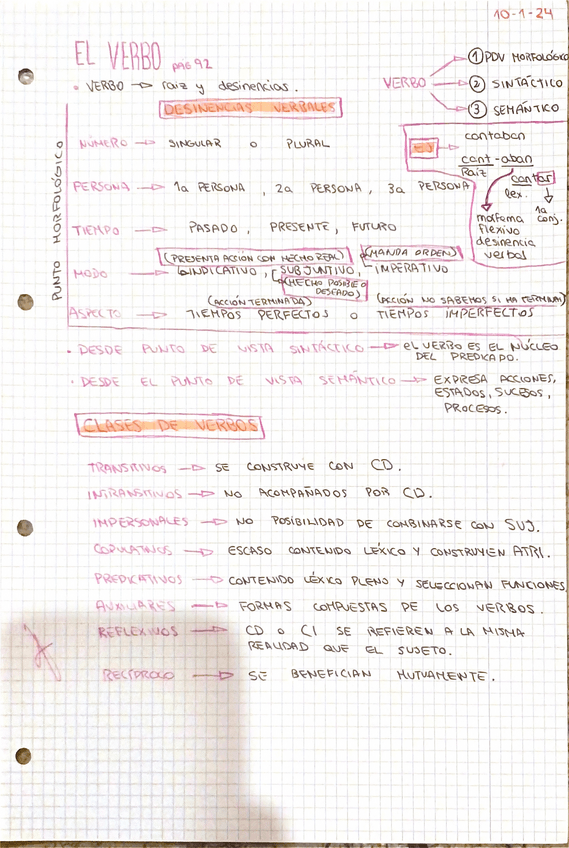 10-1-24
EL VERBO PAG 92
• VERBO → raíz y desinencias.
VERBO
① PDV MORFOLÓGICO
② SINTÁCTICO
③ SEMÁNTICO
DESINENCIAS VERBALES
PUNTO MORFOLÓGICO
NÚMERO → SINGULAR O PLURAL
PERSONA → 1a PERSONA, 2a PERSONA, 3a PERSONA
TIEMPO → PASADO, PRESENTE, FUTURO
(PRESENTA ACCIÓN COM HECHO REAL) (MANDA ORDEN)
MODO → INDICATIVO, SUBJUNTIVO, IMPERATIVO
(HECHO POSIBLE O
DESEADO)
(ACCIÓN TERMINADA) (ACCIÓN NO SABEMOS SI HA TERMINAD)
ASPECTO → TIEMPOS PERFECTOS O TIEMPOS IMPERFECTOS
EJ → cantaban
cant-aban
Raíz
cantar
lex.
1a
conj.
morfema
flexivo
desinencia
verbal
• DESDE PUNTO DE VISTA SINTÁCTICO → EL VERBO ES EL NÚCLEO
DEL PREDICADO.
• DESDE EL PUNTO DE VISTA SEMÁNTICO → EXPRESA ACCIONES,
ESTADOS, SUCESOS,
PROCESOS.
CLASES DE VERBOS
TRANSITIVOS → SE CONSTRUYE CON CD.
INTRANSITIVOS → NO ACOMPAÑADOS POR CD.
IMPERSONALES → NO POSIBILIDAD DE COMBINARSE CON SUJ.
COPULATIVOS → ESCASO CONTENIDO LÉXICO Y CONSTRUYEN ATRI.
PREDICATIVOS → CONTENIDO LÉXICO PLENO Y SELECCIONAN FUNCIONES
AUXILIARES → FORMAS COMPUESTAS DE LOS VERBOS.
REFLEXIVOS → CD O CI SE REFIEREN A LA MISMA
REALIDAD QUE EL SUJETO.
RECÍPROCO → SE BENEFICIAN MUTUAMENTE.